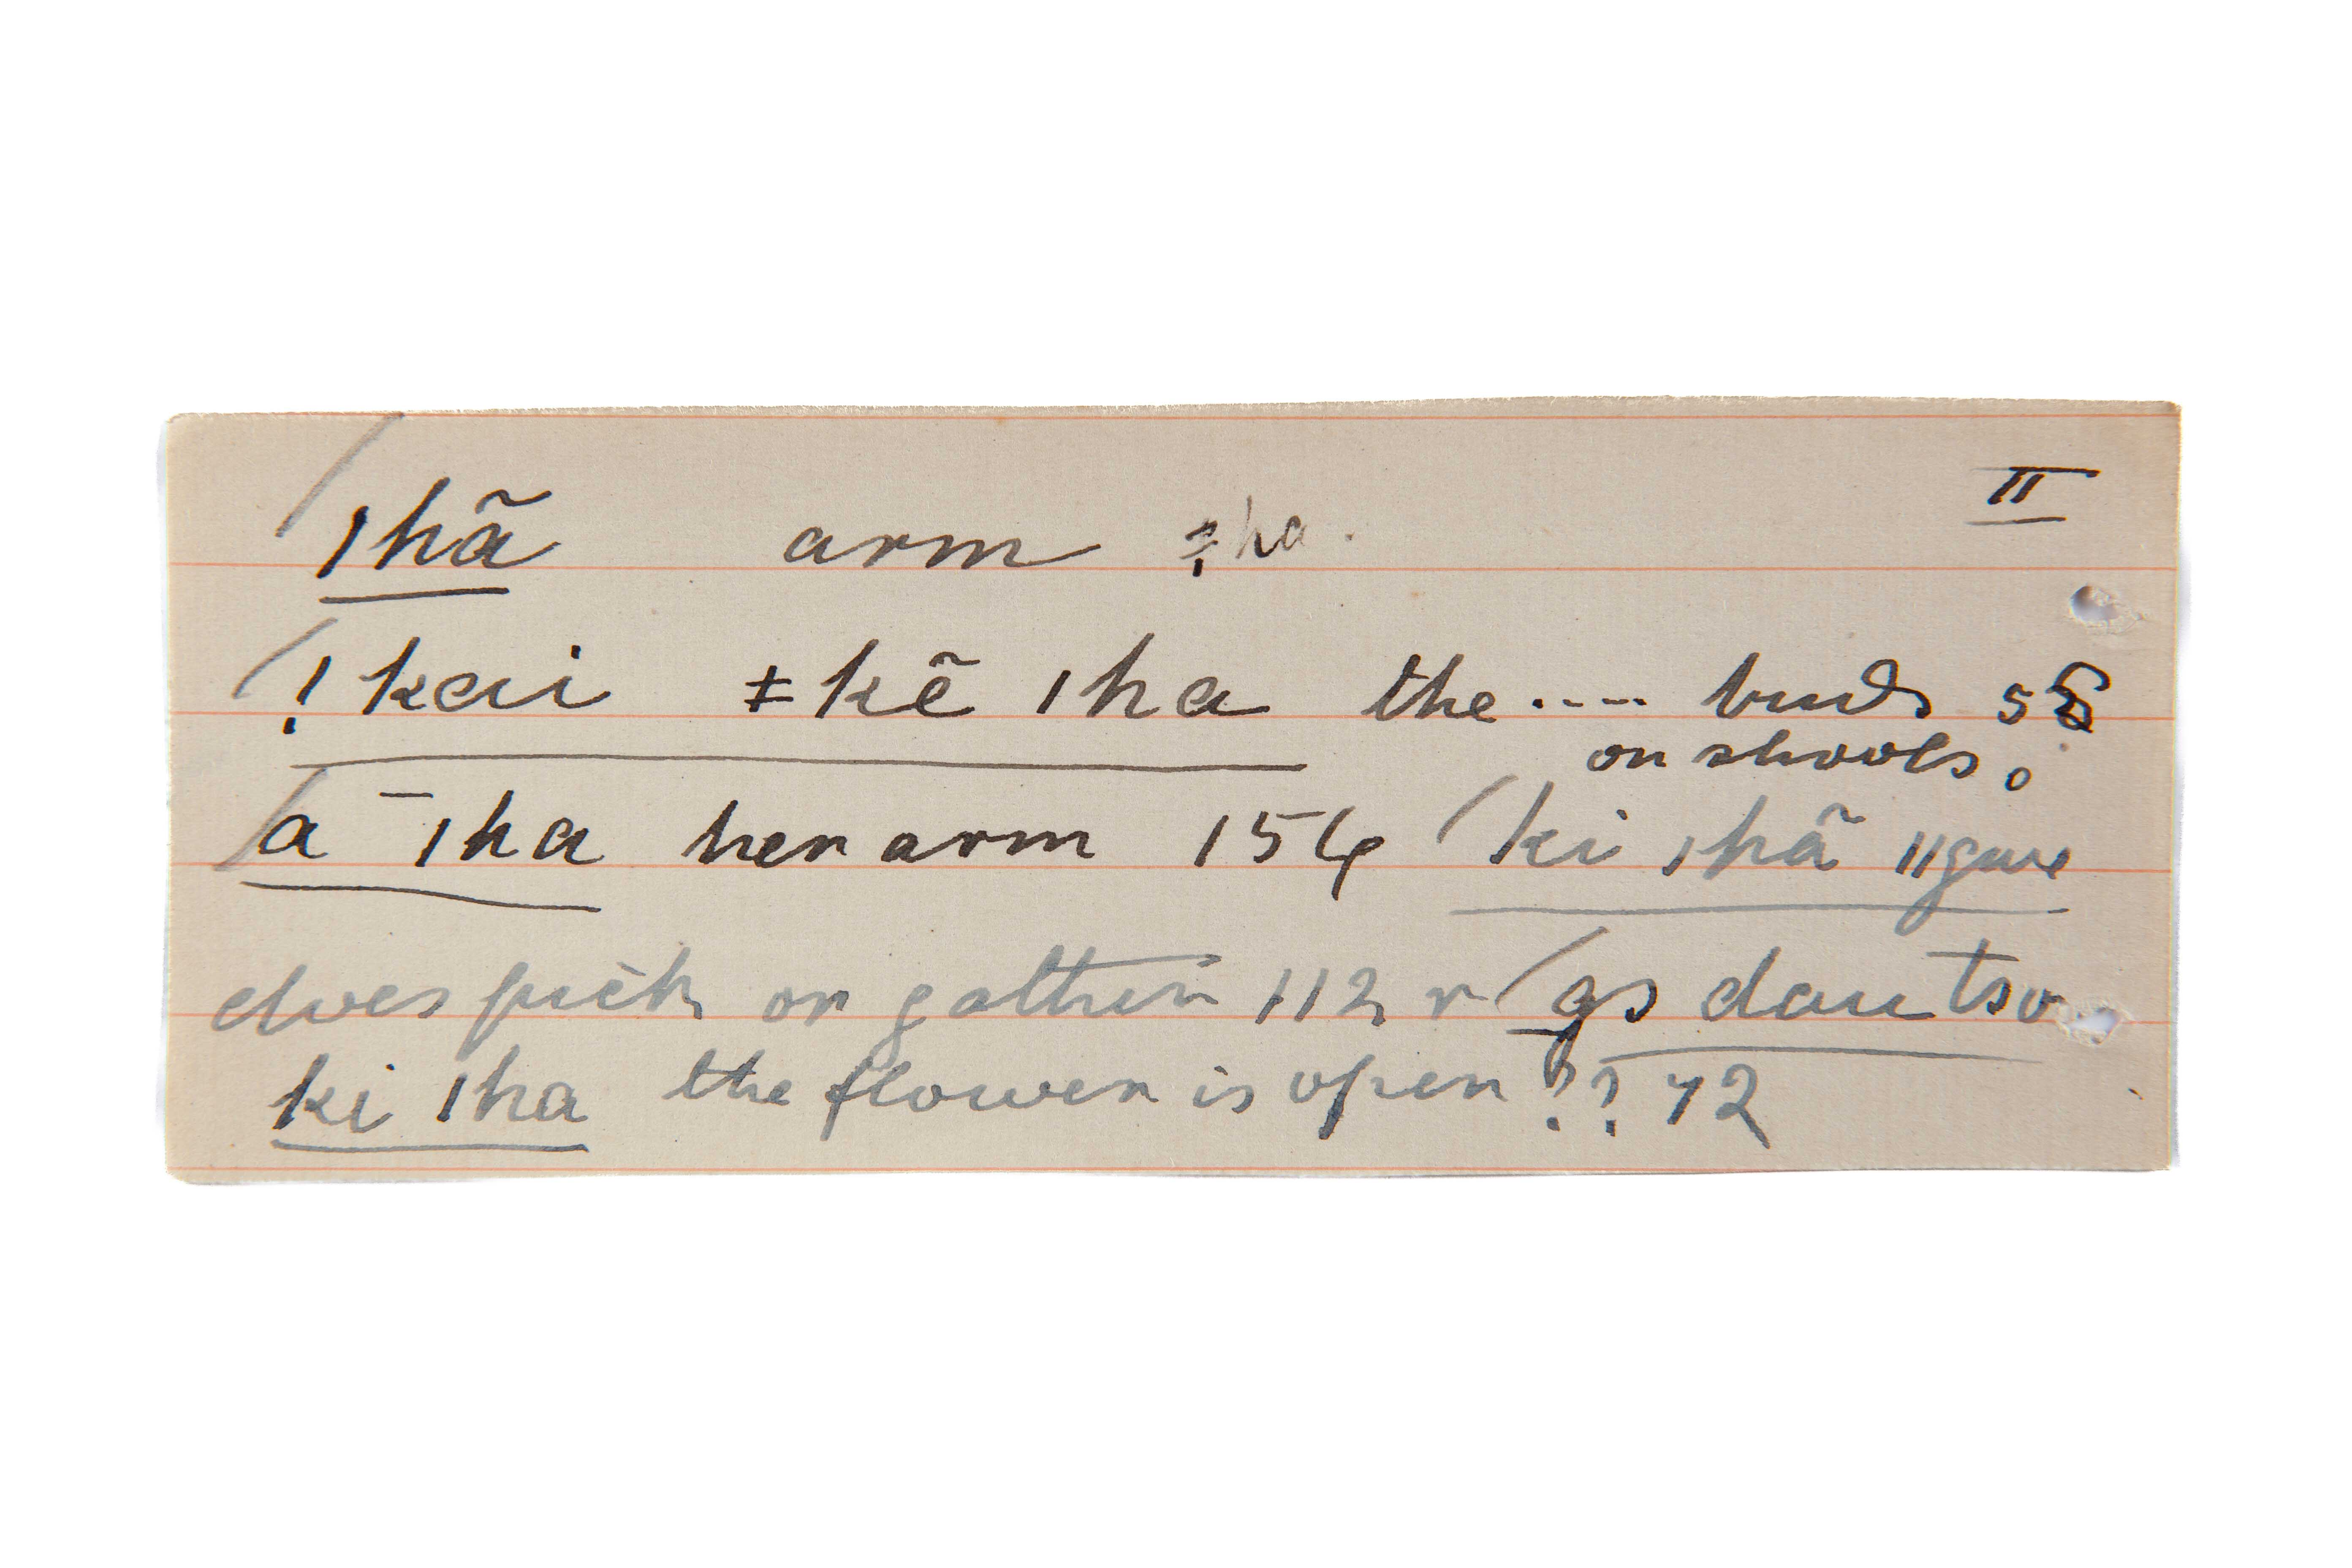 II
ǀhã arm ǂha.
!kai ǂkẽ ǀha the .... buds 58
on shoots.
a ǀha her arm 154 ki ǀhã ǁgwe
does pick or gather 112 r gs dau tso
ki ǀha the flower is open ?? 72